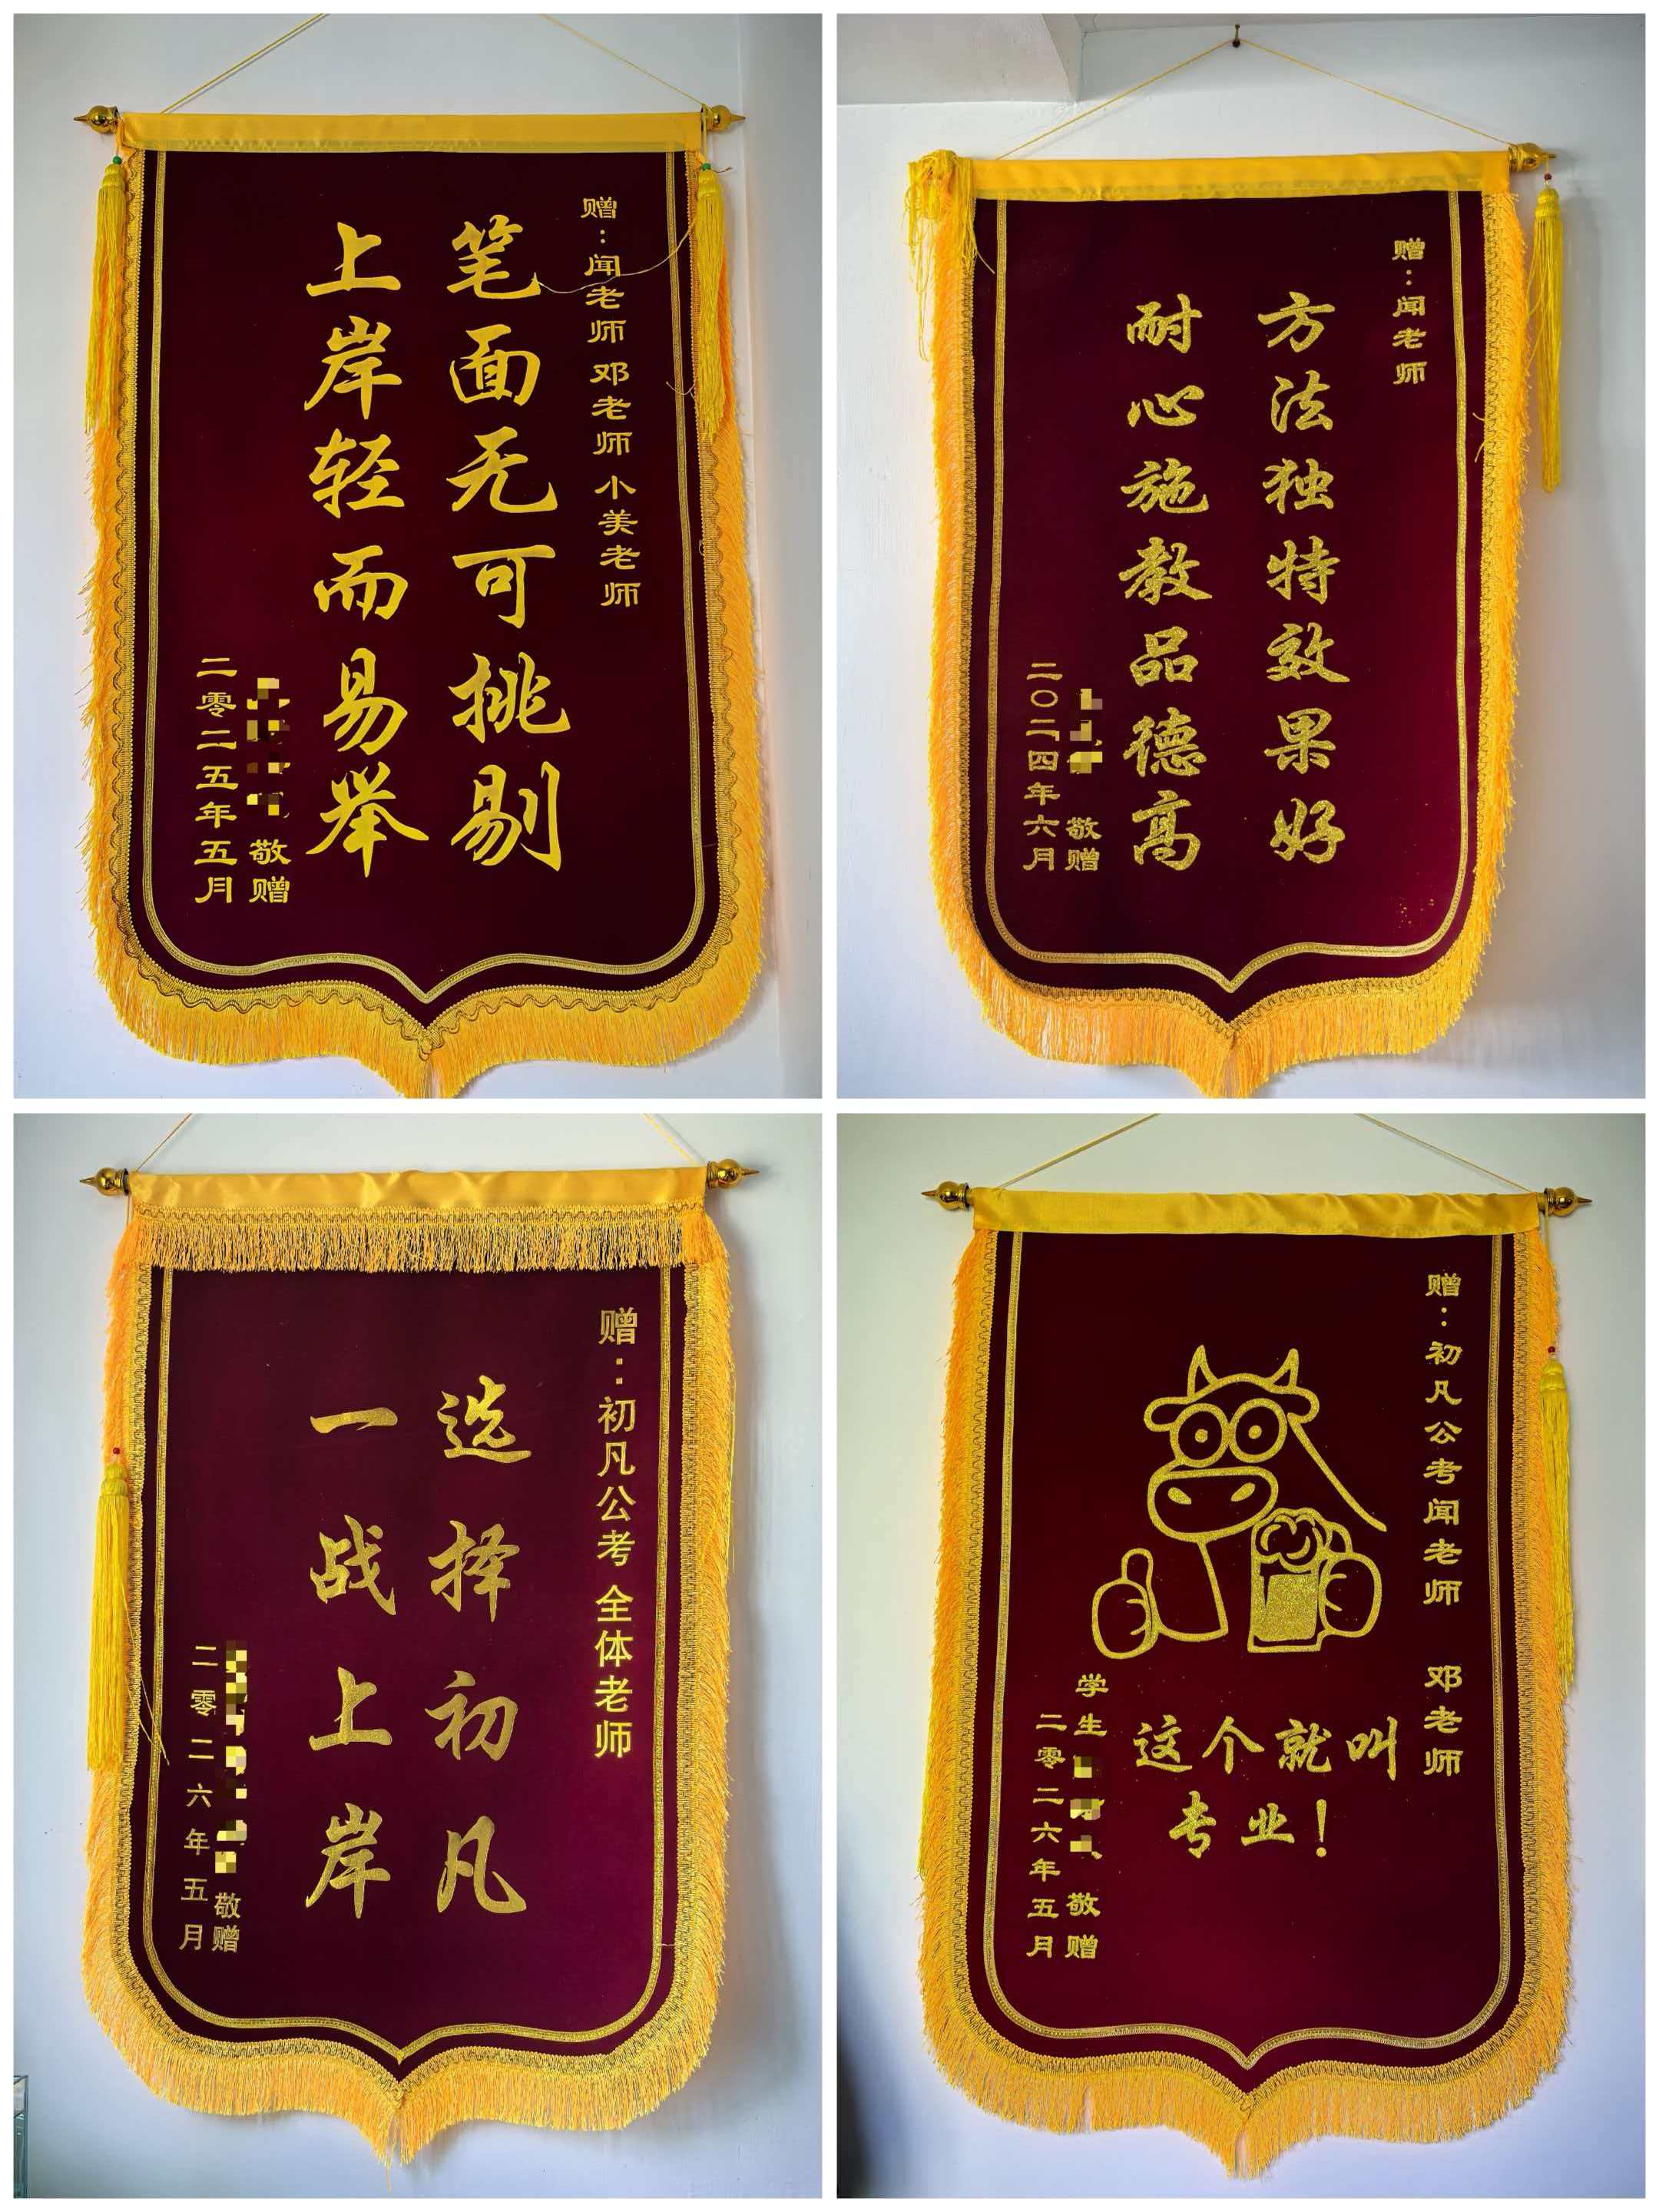 赠：闻老师 邓老师 小美老师
笔面无可挑剔
上岸轻而易举
敬赠
二零二五年五月
赠：闻老师
方法独特效果好
耐心施教品德高
敬赠
二〇二四年六月
赠：初凡公考 全体老师
选择初凡
一战上岸
敬赠
二零二六年五月
赠：初凡公考闻老师 邓老师
这个就叫
专业！
学生 敬赠
二零二六年五月